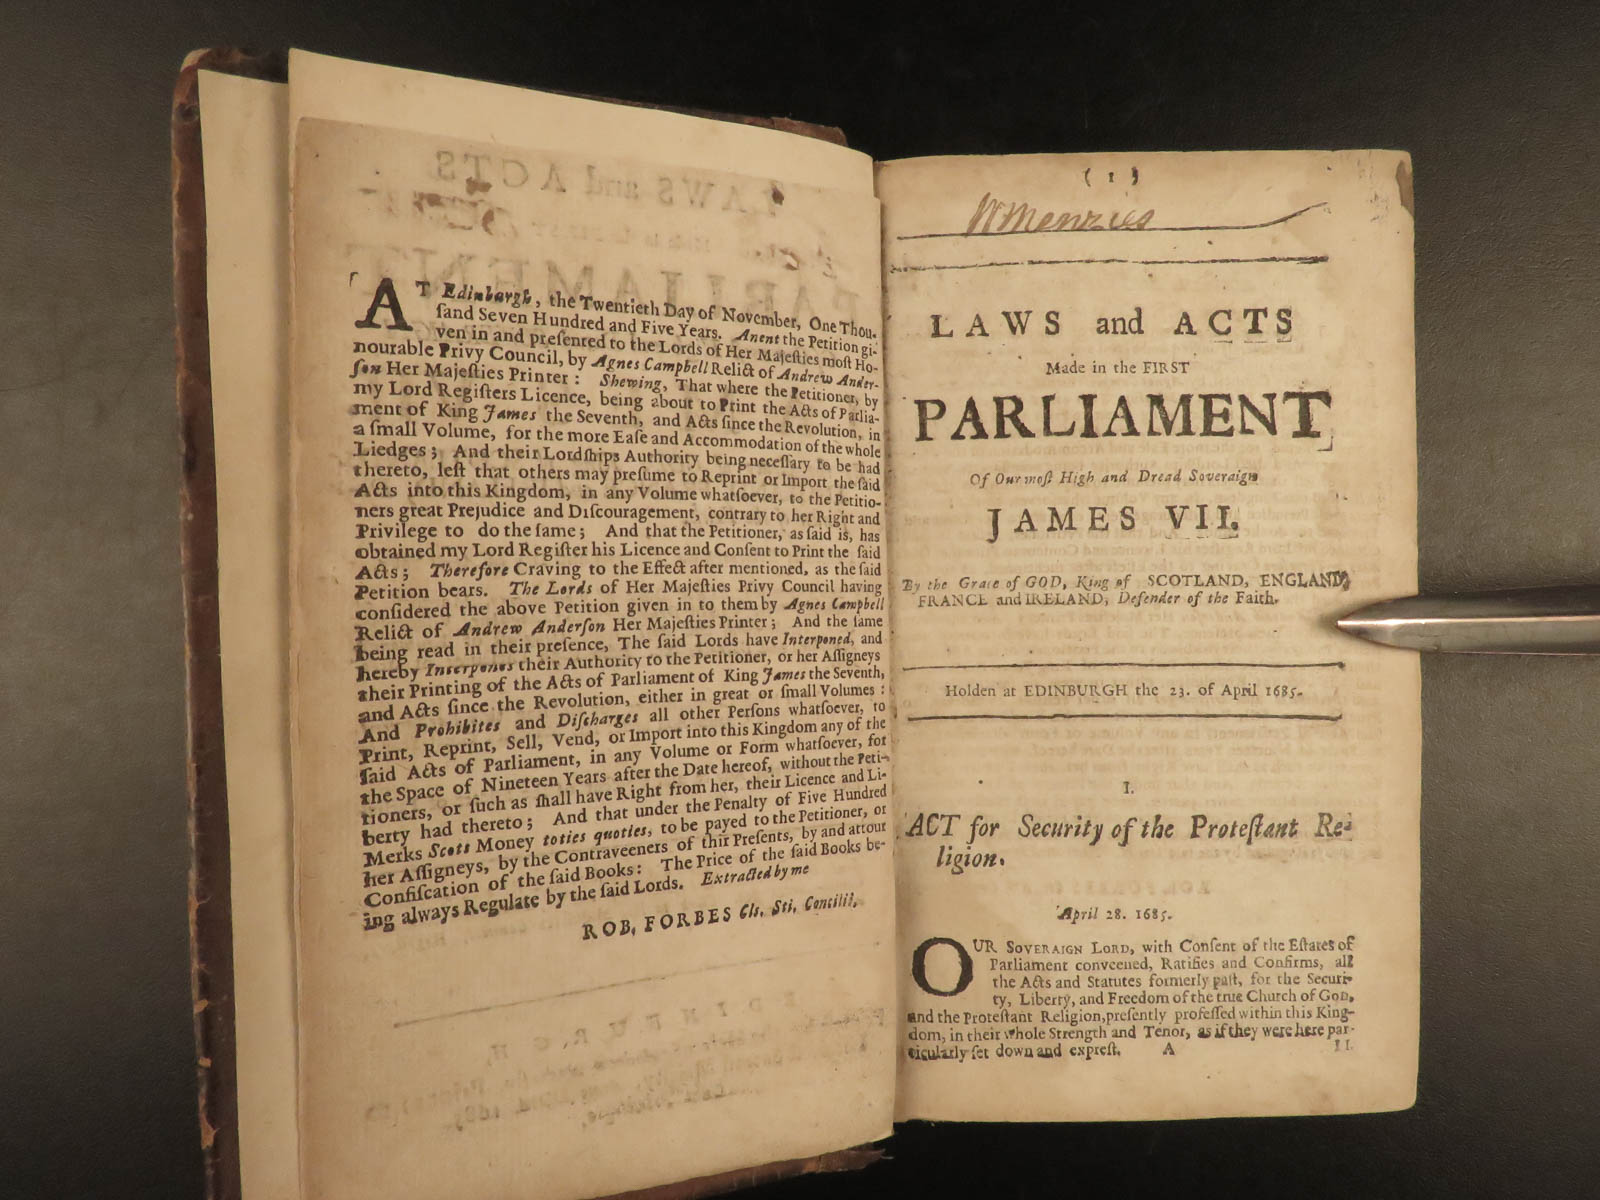 AT Edinburgh, the Twentieth Day of November, One Thou-
ſand Seven Hundred and Five Years. Anent the Petition gi-
ven in and preſented to the Lords of Her Majeſties moſt Ho-
nourable Privy Council, by Agnes Campbell Relict of Andrew Ander-
ſon Her Majeſties Printer: Shewing, That where the Petitioner, by
my Lord Regiſters Licence, being about to Print the Acts of Parlia-
ment of King James the Seventh, and Acts ſince the Revolution, in
a ſmall Volume, for the more Eaſe and Accommodation of the whole
Liedges; And their Lordſhips Authority being neceſſary to be had
thereto, leſt that others may preſume to Reprint or Import the ſaid
Acts into this Kingdom, in any Volume whatſoever, to the Petitio-
ners great Prejudice and Diſcouragement, contrary to her Right and
Privilege to do the ſame; And that the Petitioner, as ſaid is, has
obtained my Lord Regiſter his Licence and Conſent to Print the ſaid
Acts; Therefore Craving to the Effect after mentioned, as the ſaid
Petition bears. The Lords of Her Majeſties Privy Council having
conſidered the above Petition given in to them by Agnes Campbell
Relict of Andrew Anderſon Her Majeſties Printer; And the ſame
being read in their preſence, The ſaid Lords have Interponed, and
hereby Interpones their Authority to the Petitioner, or her Aſſigneys
their Printing of the Acts of Parliament of King James the Seventh,
and Acts ſince the Revolution, either in great or ſmall Volumes:
And Prohibites and Diſcharges all other Perſons whatſoever, to
Print, Reprint, Sell, Vend, or Import into this Kingdom any of the
ſaid Acts of Parliament, in any Volume or Form whatſoever, for
the Space of Nineteen Years after the Date hereof, without the Peti-
tioners, or ſuch as ſhall have Right from her, their Licence and Li-
berty had thereto; And that under the Penalty of Five Hundred
Merks Scots Money toties quoties, to be payed to the Petitioner, or
her Aſſigneys, by the Contraveeners of thir Preſents, by and attour
Confiſcation of the ſaid Books: The Price of the ſaid Books be-
ing always Regulate by the ſaid Lords. Extracted by me
ROB. FORBES Cls. Sti. Concilii.
(1)
W Menzies
LAWS and ACTS
Made in the FIRST
PARLIAMENT
Of Our moſt High and Dread Soveraign
JAMES VII.
By the Grace of GOD, King of SCOTLAND, ENGLAND,
FRANCE and IRELAND, Defender of the Faith.
Holden at EDINBURGH the 23. of April 1685.
I.
ACT for Security of the Proteſtant Re-
ligion.
April 28. 1685.
OUR SOVERAIGN LORD, with Conſent of the Eſtates of
Parliament conveened, Ratifies and Confirms, all
the Acts and Statutes formerly paſt, for the Securi-
ty, Liberty, and Freedom of the true Church of GOD,
and the Proteſtant Religion, preſently profeſſed within this King-
dom, in their whole Strength and Tenor, as if they were here par-
ticularly ſet down and expreſt. A II.